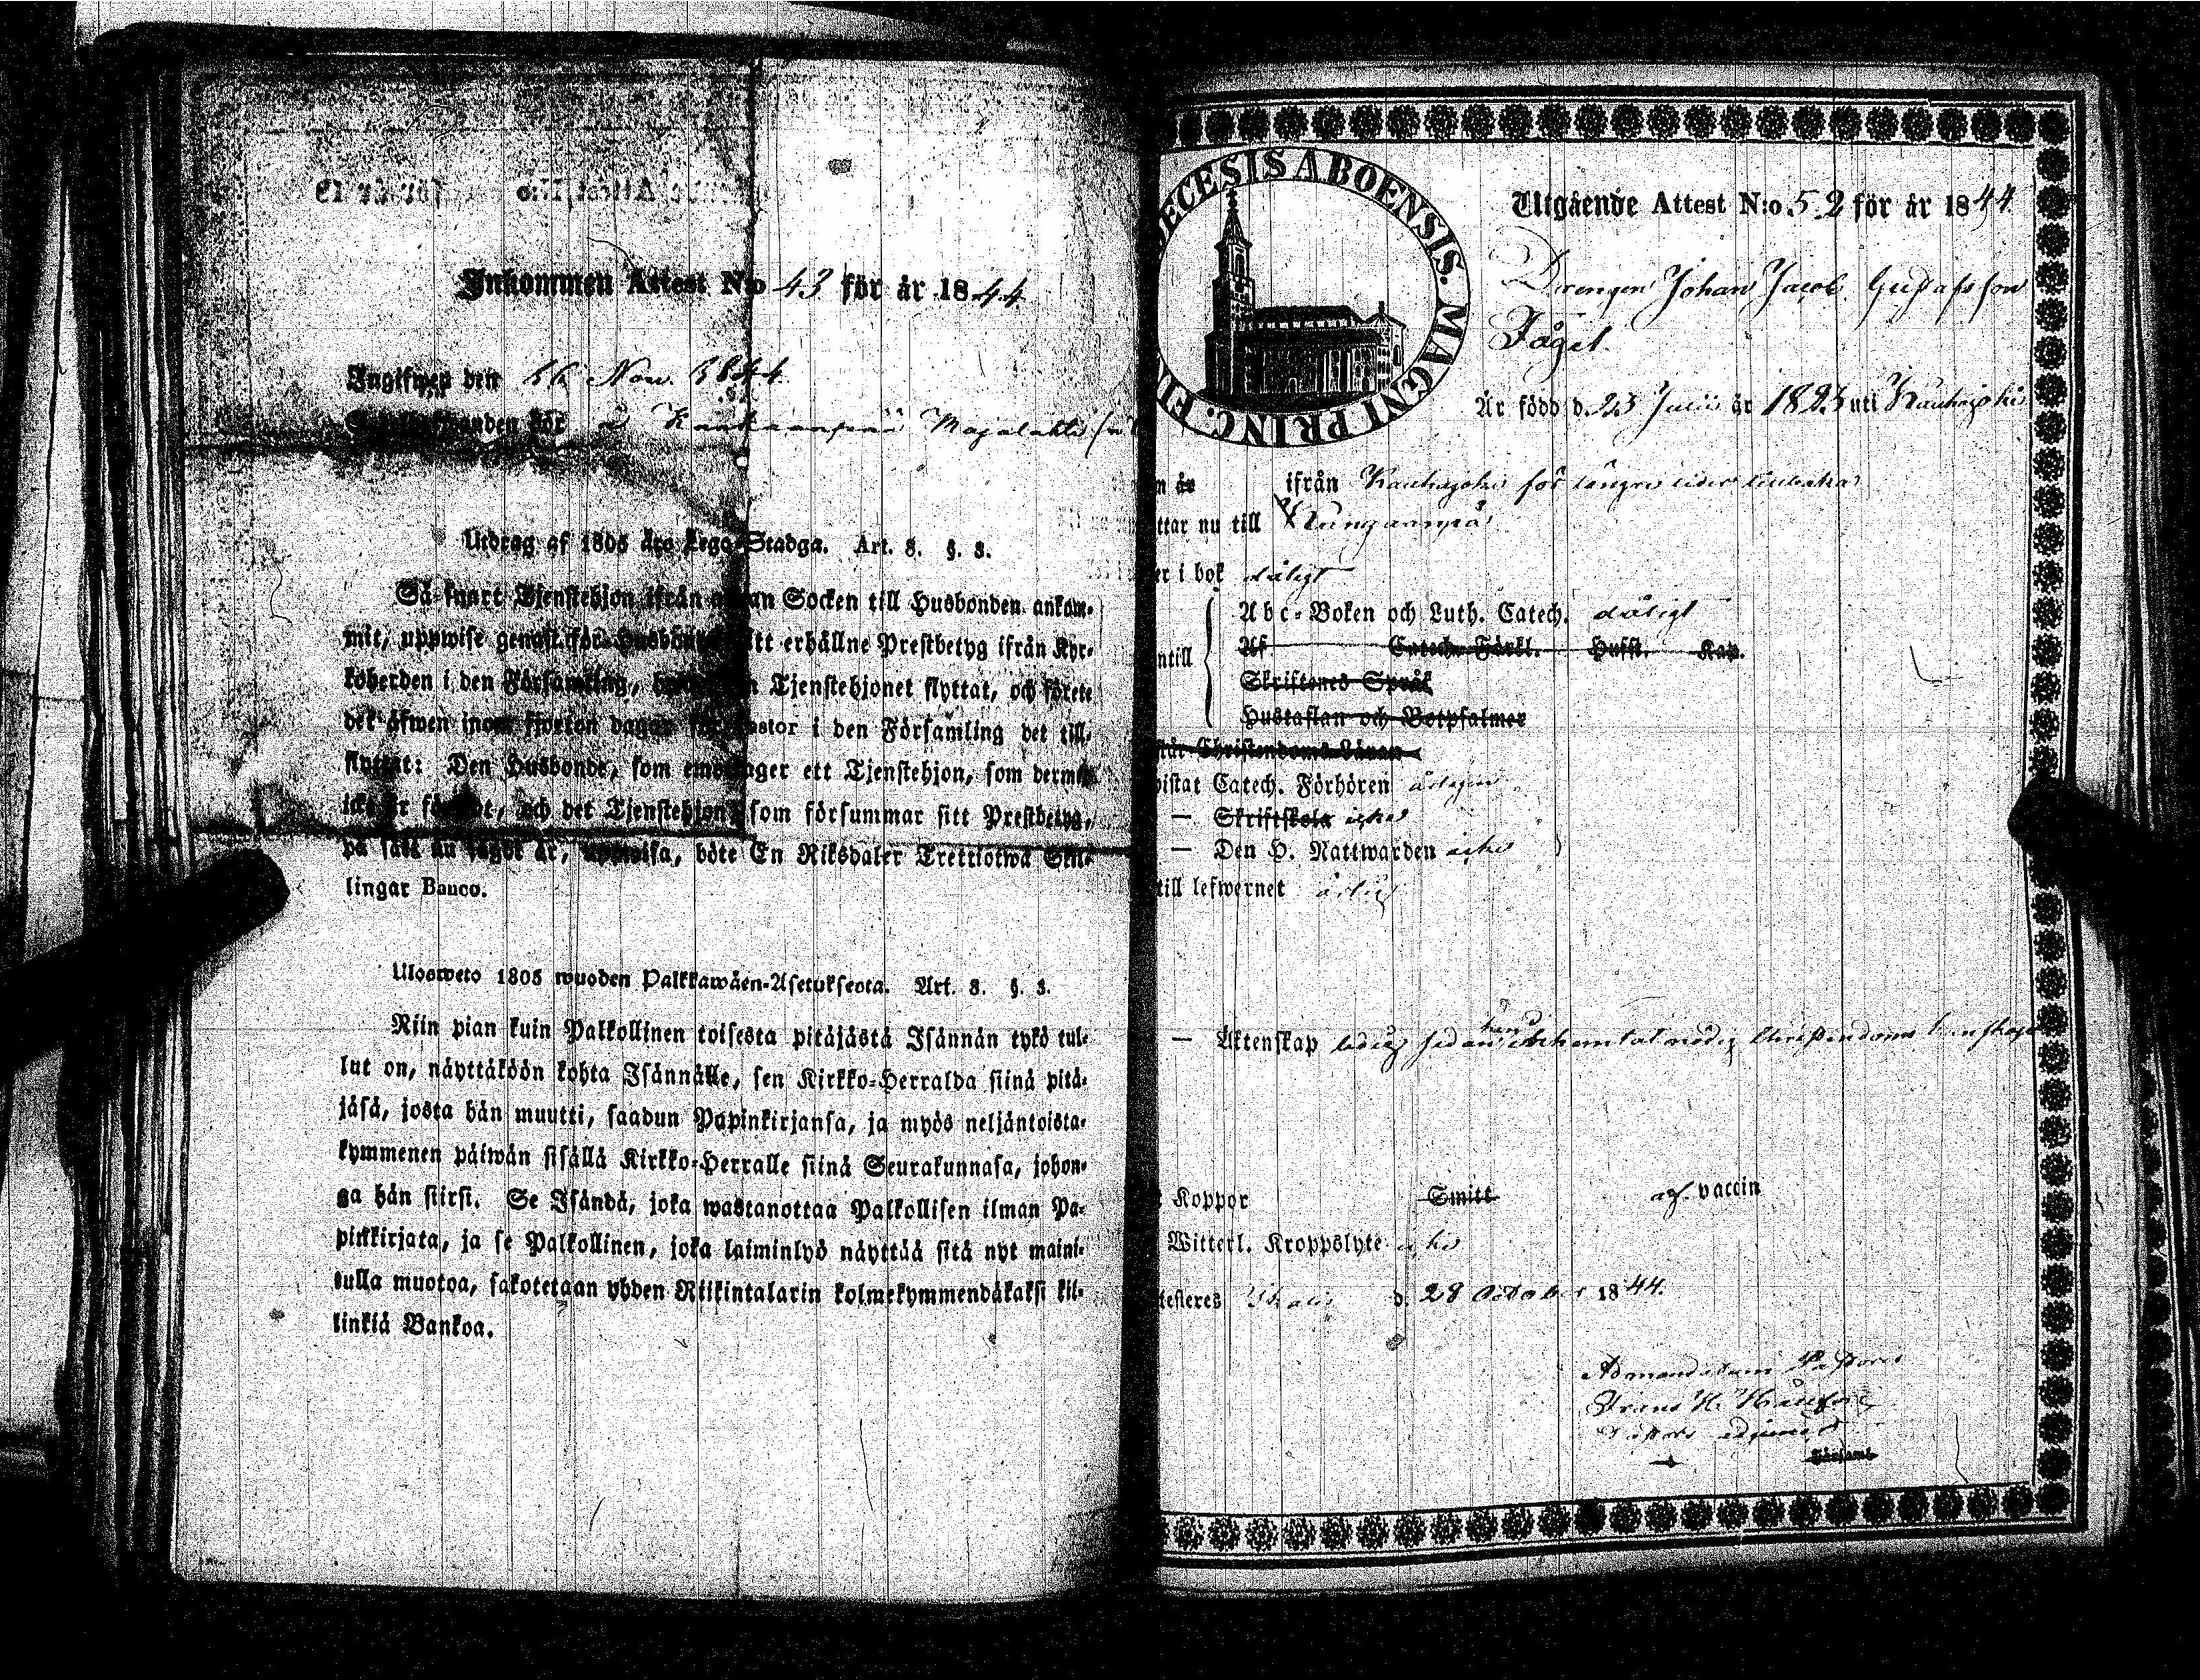 Inkommen Attest N:o 43 för år 1844
Ingifwen den 16 Nov. 1844
för å Kankaanpää Majalahti
Utdrag af 1805 års Lego-Stadga. Art. 8. §. 3.
Så snart Tjenstehjon ifrån annan Socken till Husbonden ankom-
mit, uppwise genast för Husbonden sitt erhållne Prestbetyg ifrån Kyr-
koherden i den Församling, Tjenstehjonet flyttat, och förete
det äfwen inom fjorton dagar för Pastor i den Församling det till-
flyttat: Den Husbonde, som emottager ett Tjenstehjon, som dermed
icke är försedt, och det Tjenstehjon, som försummar sitt Prestbetyg,
på sätt nu sagdt är, uppwisa, böte En Riksdaler Trettiotwå Skil-
lingar Banco.
Ulosweto 1805 wuoden Palkkawäen-Asetuksesta. Art. 8. §. 3.
Niin pian kuin Palkollinen toisesta pitäjästä Isännän tykö tul-
lut on, näyttäköön kohta Isännälle, sen Kirkko-Herralda siinä pitä-
jäsä, josta hän muutti, saadun Papinkirjansa, ja myös neljäntoista-
kymmenen päiwän sisällä Kirkko-Herralle siinä Seurakunnasa, johon-
ga hän siirsi. Se Isändä, joka wastanottaa Palkollisen ilman Pa-
pinkirjata, ja se Palkollinen, joka laiminlyö näyttää sitä nyt maini-
tulla muotoa, sakotetaan yhden Riikintalarin kolmekymmendäkaksi kil-
linkiä Bankoa.
ECESIS ABOENSIS. MAGNI PRINC. FIN
Utgående Attest N:o 52 för år 1844
Drengen Johan Jacob Gustafsson
Fågel.
Är född d. 23 Julii år 1823 uti Kauhajoki
n år ifrån Kauhajoki för längre tider tillbaka
ttar nu till Kungaanpä
er i bok dåligt
Abc-Boken och Luth. Catech. dåligt
ntill Af Catech. Förkl. Hufst. Kap.
Skriftenes Språk
Hustaflan och Botpsalmer
står Christendoms Läran
istat Catech. Förhören årligen
— Skriftskola icke
— Den H. Nattwarden icke
till lefwernet ärlig
han
— Äktenskap ledig sedan inhemtat nödig Christendoms kunskap
Koppor Smitt af vaccin
Witterl. Kroppslyte icke
testeres d. 28 October 1844.
Frans H.
Församl.